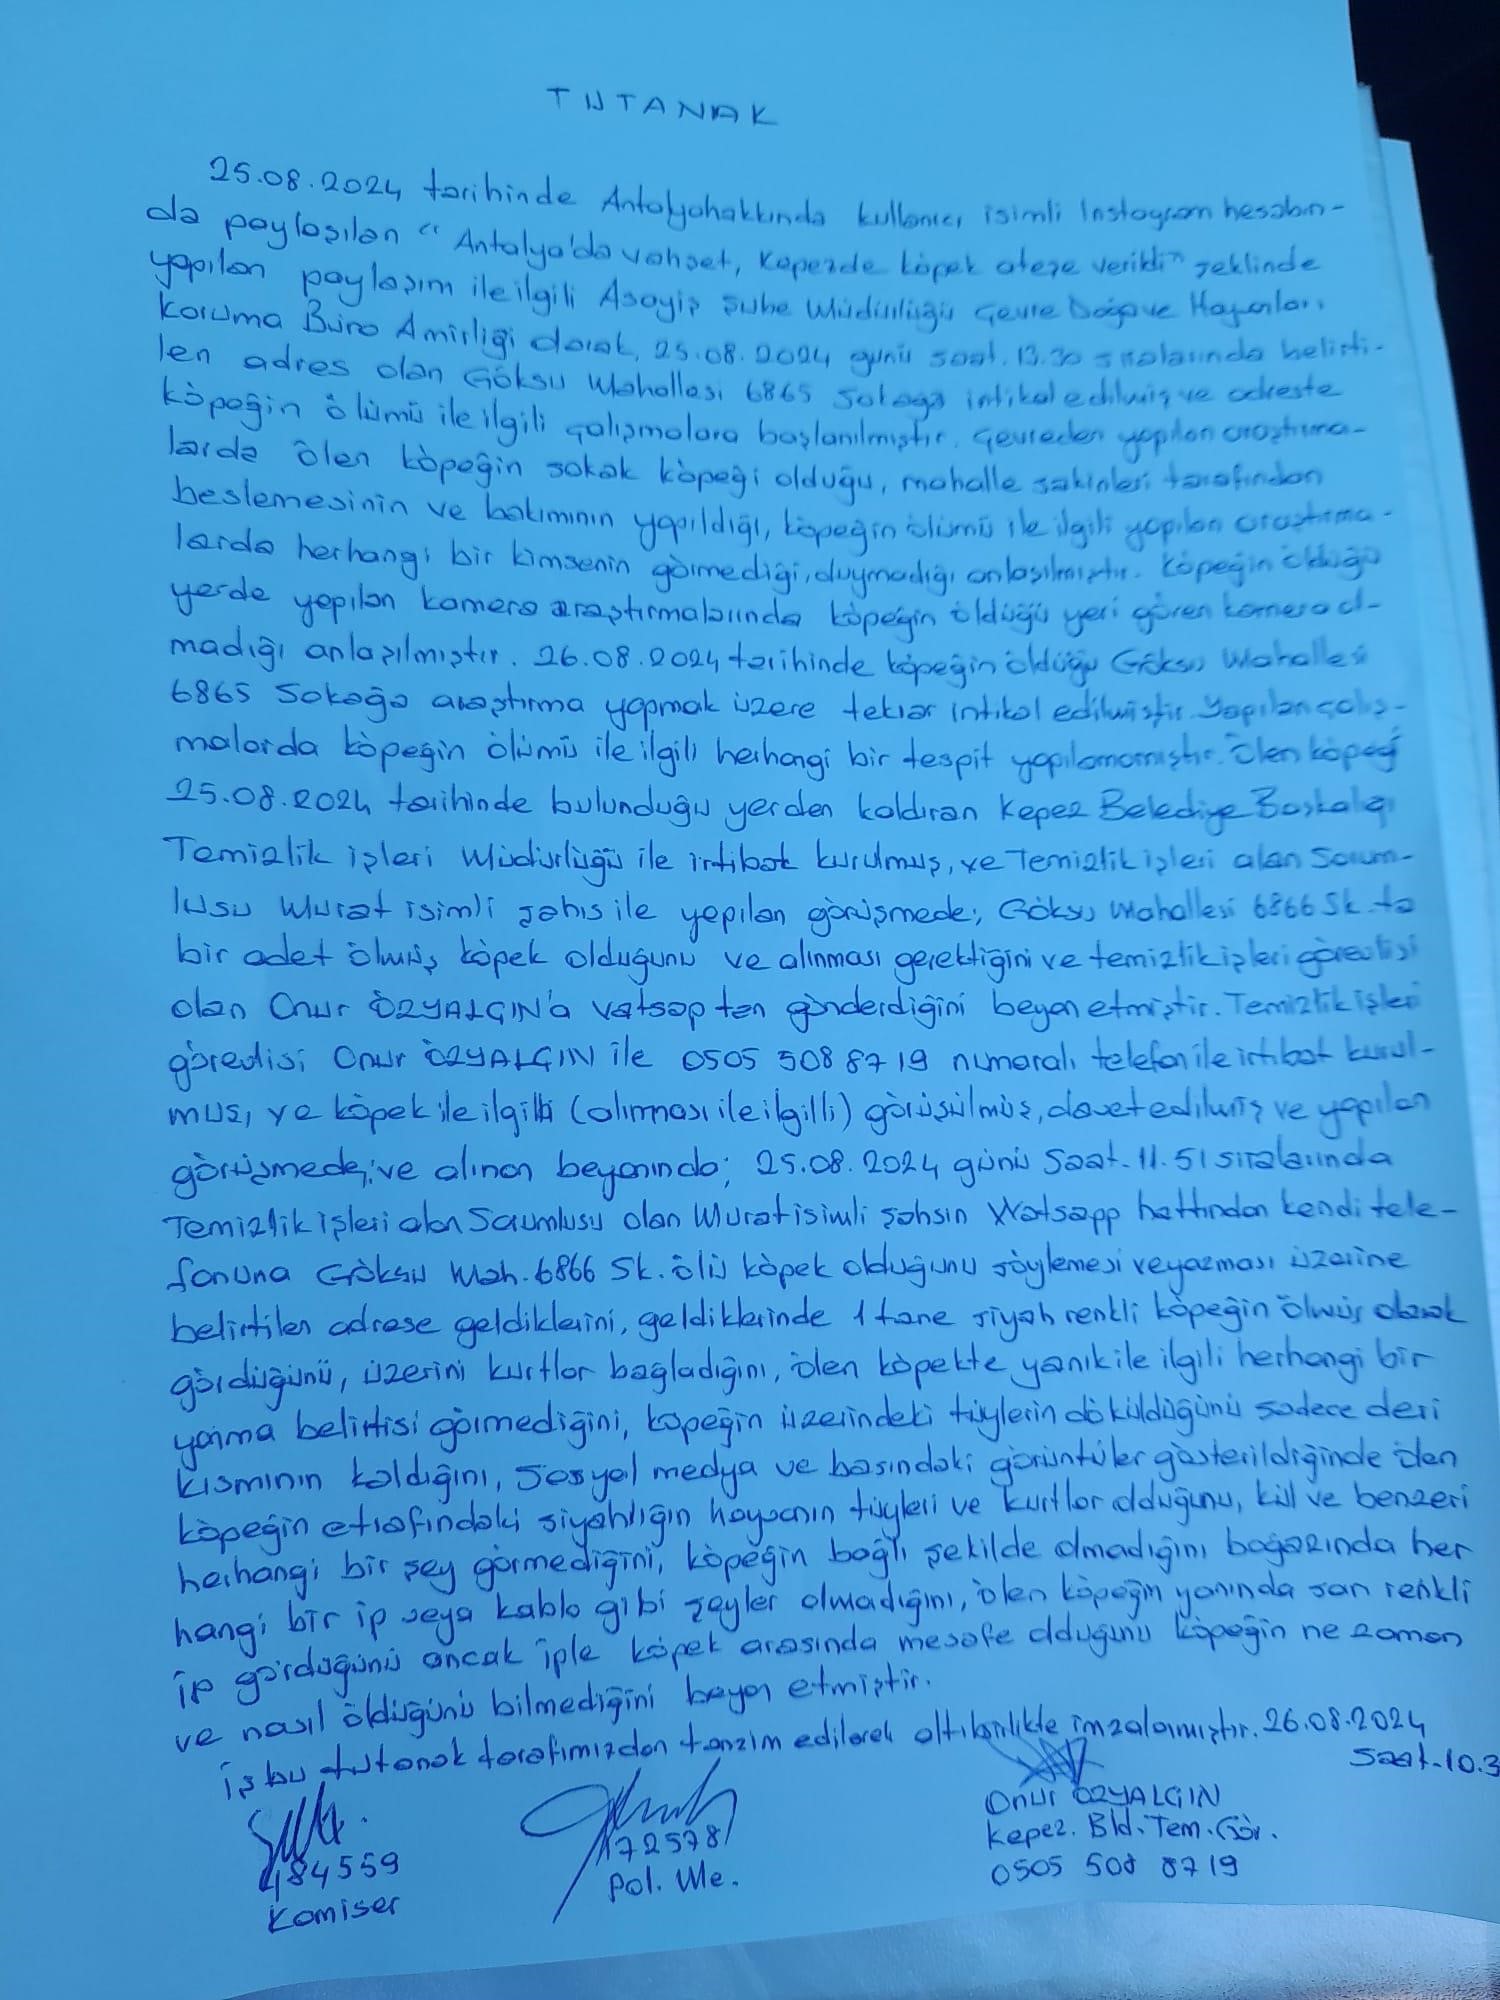 TUTANAK
25.08.2024 tarihinde Antalyahakkında kullanıcı isimli Instagram hesabın-
da paylaşılan "Antalya'da vahşet, Kepezde köpek ateşe verildi" şeklinde
yapılan paylaşım ile ilgili Asayiş Şube Müdürlüğü Çevre Doğa ve Hayvanları
Koruma Büro Amirliği olarak, 25.08.2024 günü saat. 13.30 sıralarında belirti-
len adres olan Göksu Mahallesi 6865 Sokağa intikal edilmiş ve adreste
köpeğin ölümü ile ilgili çalışmalara başlanılmıştır. Çevreden yapılan araştırma-
larda ölen köpeğin sokak köpeği olduğu, mahalle sakinleri tarafından
beslemesinin ve bakımının yapıldığı, köpeğin ölümü ile ilgili yapılan araştırma-
larda herhangi bir kimsenin görmediği, duymadığı anlaşılmıştır. Köpeğin öldüğü
yerde yapılan kamera araştırmalarında köpeğin öldüğü yeri gören kamera ol-
madığı anlaşılmıştır. 26.08.2024 tarihinde köpeğin öldüğü Göksu Mahallesi
6865 Sokağa araştırma yapmak üzere tekrar intikal edilmiştir. Yapılan çalış-
malarda köpeğin ölümü ile ilgili herhangi bir tespit yapılamamıştır. Ölen köpeği
25.08.2024 tarihinde bulunduğu yerden kaldıran Kepez Belediye Başkalığı
Temizlik işleri Müdürlüğü ile irtibat kurulmuş, ve Temizlik işleri alan Sorum-
lusu Murat isimli şahıs ile yapılan görüşmede; Göksu Mahallesi 6866 Sk. ta
bir adet ölmüş köpek olduğunu ve alınması gerektiğini ve temizlik işleri görevlisi
olan Onur ÖZYALÇIN'a vatsap ten gönderdiğini beyan etmiştir. Temizlik işleri
görevlisi Onur ÖZYALÇIN ile 0505 508 8719 numaralı telefon ile irtibat kurul-
muş, ve köpek ile ilgili (alınması ile ilgilli) görüşülmüş, davet edilmiş ve yapılan
görüşmede; ve alınan beyanında; 25.08.2024 günü Saat. 11.51 sıralarında
Temizlik işleri alan Sorumlusu olan Murat isimli şahsın Watsapp hattından kendi tele-
fonuna Göksu Mah. 6866 Sk. ölü köpek olduğunu söylemesi veyazması üzerine
belirtilen adrese geldiklerini, geldiklerinde 1 tane siyah renkli köpeğin ölmüş olarak
gördüğünü, üzerini kurtlar bağladığını, ölen köpekte yanık ile ilgili herhangi bir
yanma belirtisi görmediğini, köpeğin üzerindeki tüylerin döküldüğünü sadece deri
kısmının kaldığını, sosyal medya ve basındaki görüntüler gösterildiğinde ölen
köpeğin etrafındaki siyahlığın hayvanın tüyleri ve kurtlar olduğunu, kül ve benzeri
herhangi bir şey görmediğini, köpeğin bağlı şekilde olmadığını boğazında her
hangi bir ip veya kablo gibi şeyler olmadığını, ölen köpeğin yanında sarı renkli
ip gördüğünü ancak iple köpek arasında mesafe olduğunu köpeğin ne zaman
ve nasıl öldüğünü bilmediğini beyan etmiştir.
iş bu tutanak tarafımızdan tanzim edilerek altı birlikte imzalanmıştır. 26.08.2024
Saat. 10.3
484559
Komiser
172578
Pol. Me.
Onur ÖZYALÇIN
Kepez. Bld. Tem. Gör.
0505 508 8719